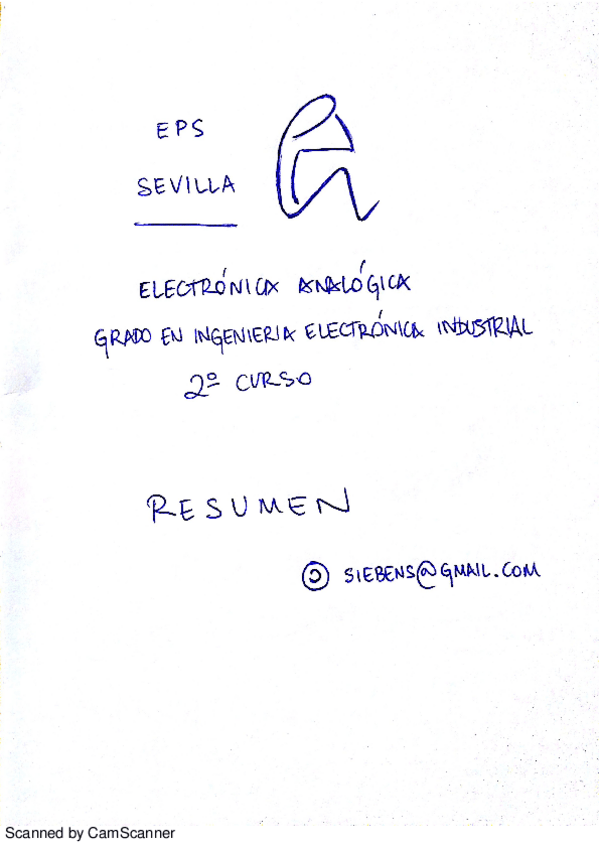 EPS
SEVILLA
ELECTRÓNICA ANALÓGICA
GRADO EN INGENIERIA ELECTRÓNICA INDUSTRIAL
2º CURSO
RESUMEN
© SIEBENS@GMAIL.COM
Scanned by CamScanner